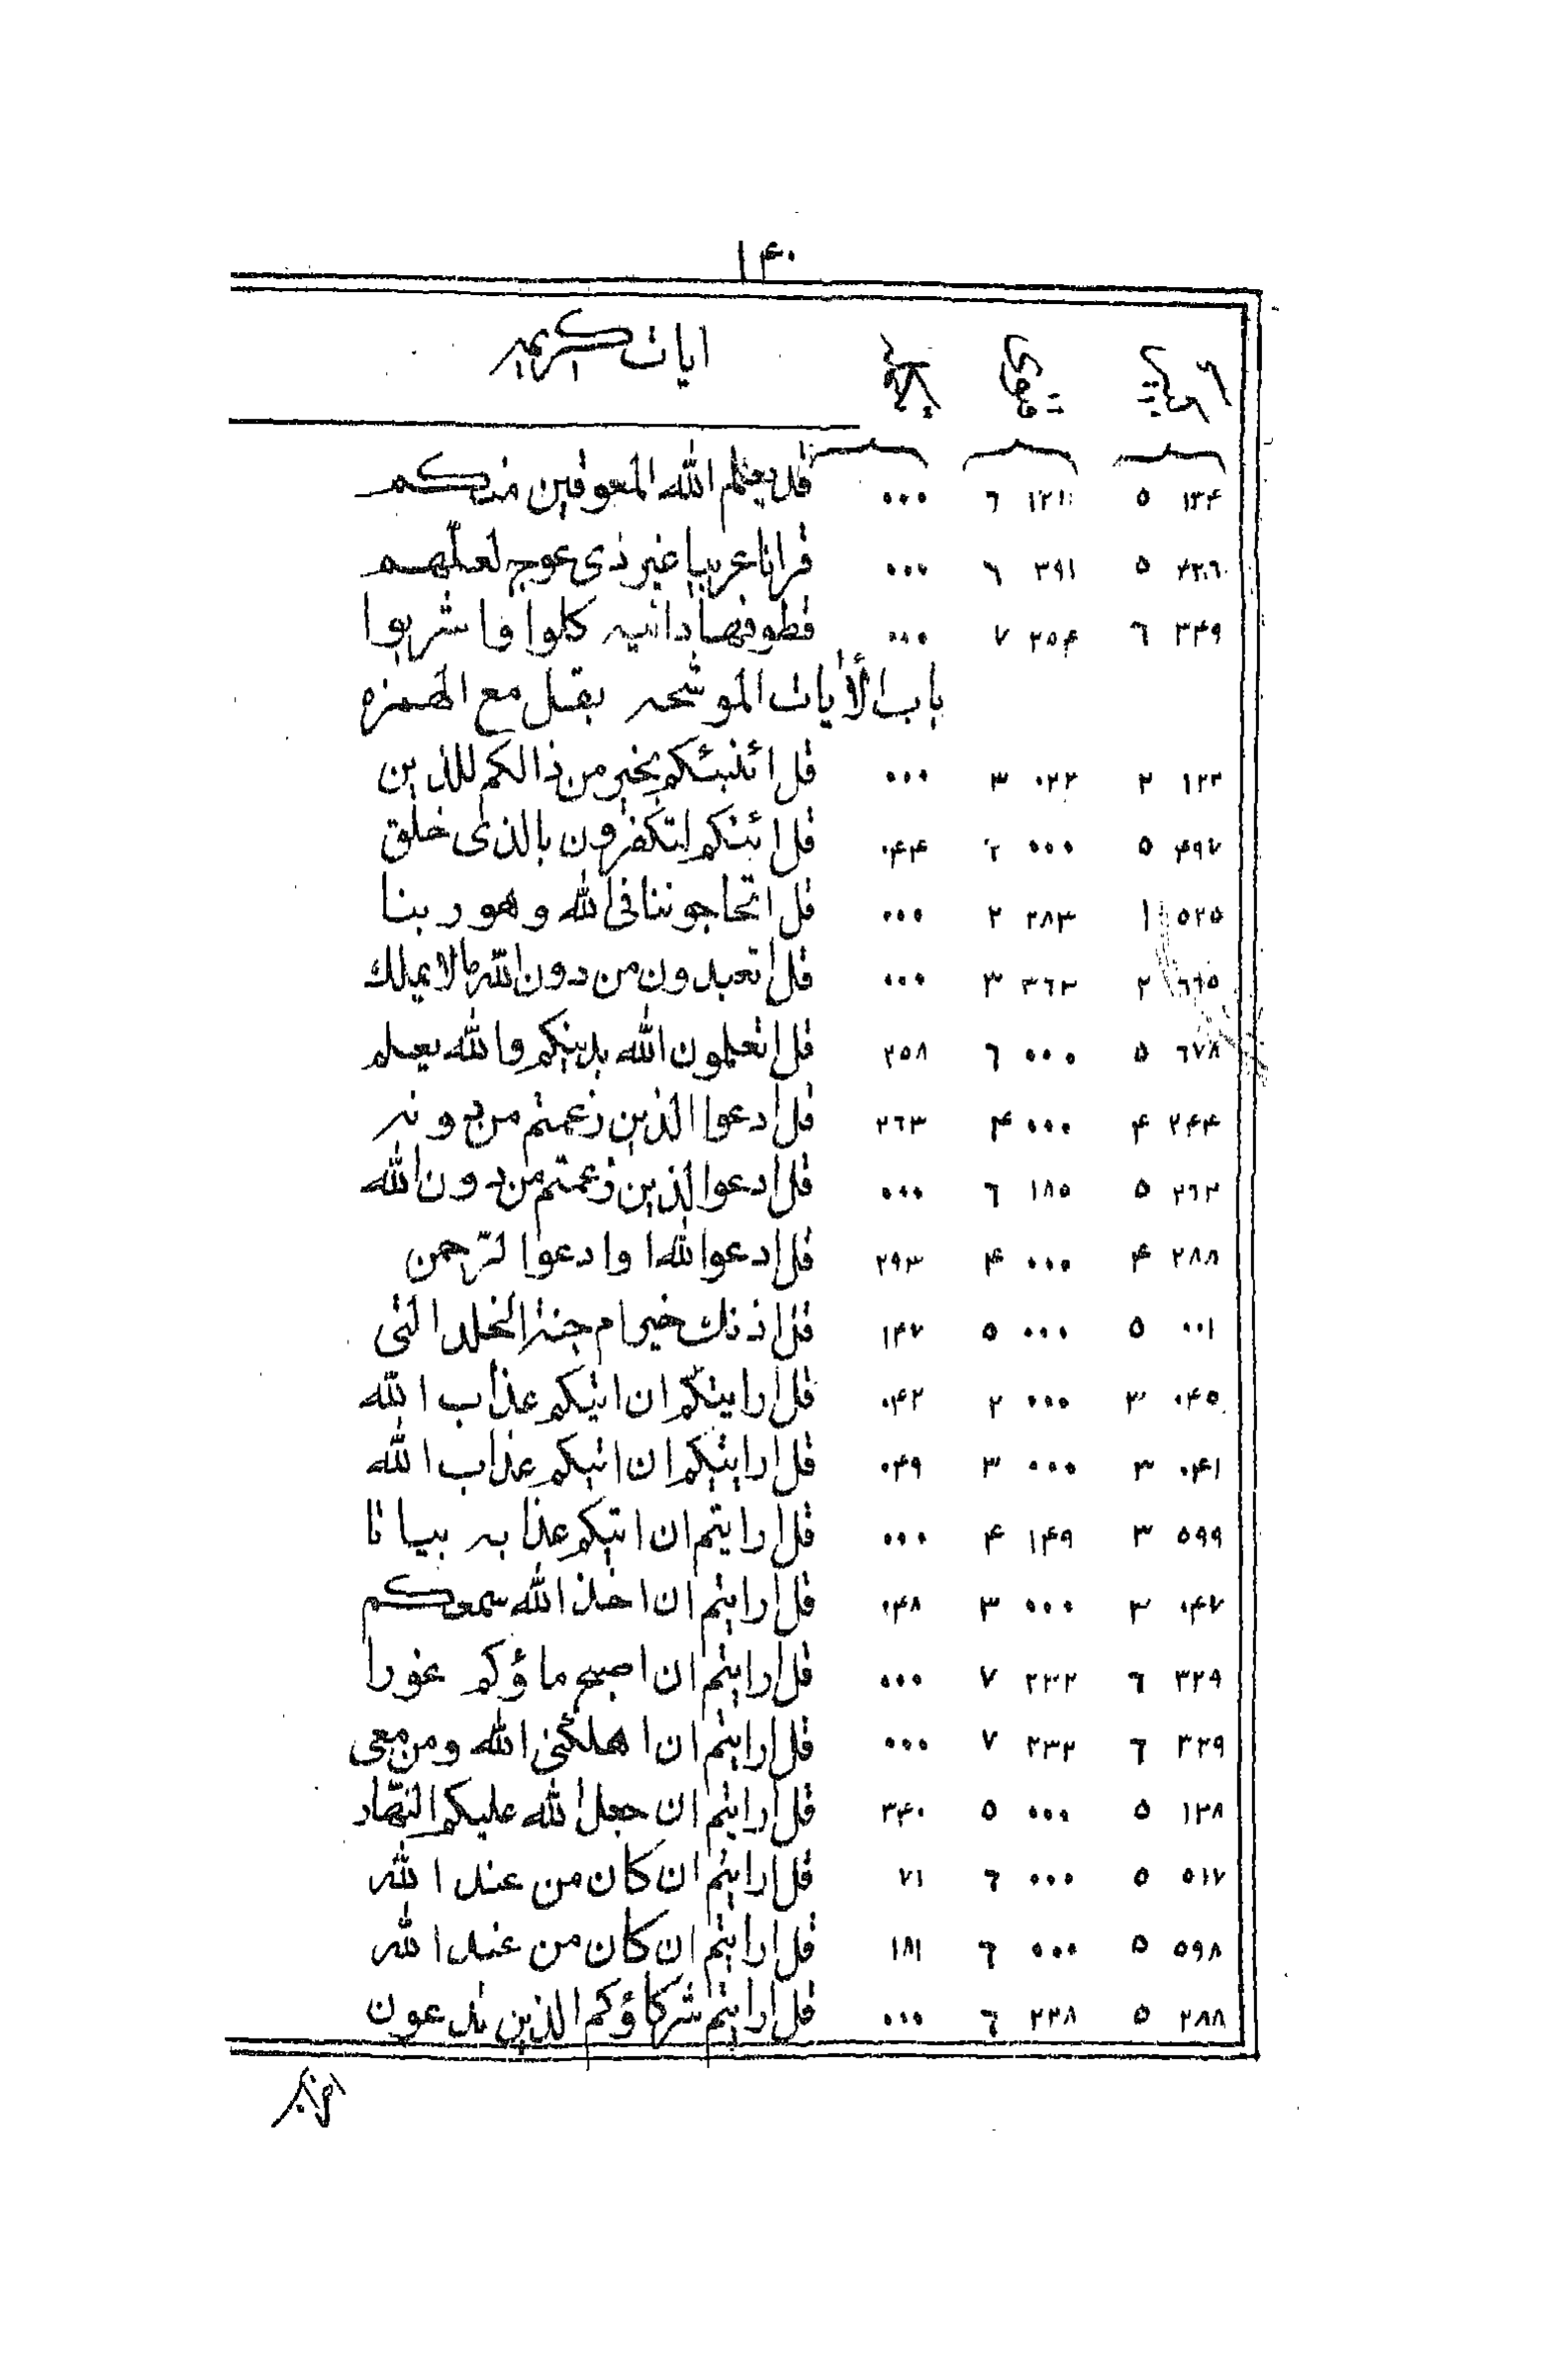 ۱۴۰
ایات کریمه
۱۳۴ ۵ ۱۲۱ ٦ ۰۰۰ قد یعلم الله المعوقین منکم
۵ ۳۹۱ ٦ ۰۰۰ قرانا عربیا غیر ذی عوج لعلهم
۳۴۹ ٦ ۲۵۴ ۷ ۰۰۰ قطوفها دانیه کلوا واشربوا
باب الأیات الموشحه بقل مع الهمزه
۱۲۳ ۲ ۰۲۲ ۳ ۰۰۰ قل ائنبئکم بخیر من ذالکم للذین
۴۹۷ ۵ ۰۰۰ ٦ ۰۴۴ قل ائنکم لتکفرون بالذی خلق
۵۲۵ ۱ ۲۸۳ ۲ ۰۰۰ قل اتحاجوننا فی الله وهو ربنا
٦٦۵ ۲ ۳٦۳ ۳ ۰۰۰ قل اتعبدون من دون الله مالایملك
٦۷۸ ۵ ۰۰۰ ٦ ۲۵۸ قل اتعلمون الله بدینکم والله یعلم
۲۴۴ ۴ ۰۰۰ ۴ ۲٦۳ قل ادعوا الذین زعمتم من دونه
۲٦۳ ۵ ۱۸۵ ٦ ۰۰۰ قل ادعوا الذین زعمتم من دون الله
۲۸۸ ۴ ۰۰۰ ۴ ۲۹۳ قل ادعوا لله اوادعوا لرّحمن
۰۰۱ ۵ ۰۰۰ ۵ ۱۴۷ قل اذ لك خیر ام جنة الخلد التی
۰۴۵ ۳ ۰۰۰ ۲ ۰۴۲ قل ارایتکم ان اتیکم عذاب الله
۰۴۱ ۳ ۰۰۰ ۳ ۰۴۹ قل ارایتکم ان اتیکم عذاب الله
۵۹۹ ۳ ۱۴۹ ۴ ۰۰۰ قل ارایتم ان اتیکم عذابه بیاتا
۰۴۷ ۳ ۰۰۰ ۳ ۰۴۸ قل ارایتم ان اخذ الله سمعکم
۳۲۹ ٦ ۲۳۲ ۷ ۰۰۰ قل ارایتم ان اصبح ماؤکم غورا
۳۲۹ ٦ ۲۳۲ ۷ ۰۰۰ قل ارایتم ان اهلکنی الله ومن معی
۱۳۸ ۵ ۰۰۰ ۵ ۳۴۰ قل ارایتم ان جعل الله علیکم النّهار
۵۱۷ ۵ ۰۰۰ ٦ ۷۱ قل ارایتم ان کان من عند الله
۵۹۸ ۵ ۰۰۰ ٦ ۱۸۱ قل ارایتم ان کان من عند الله
۲۸۸ ۵ ۲۳۸ ٦ ۰۰۰ قل ارایتم شرکاؤکم الذین تدعون